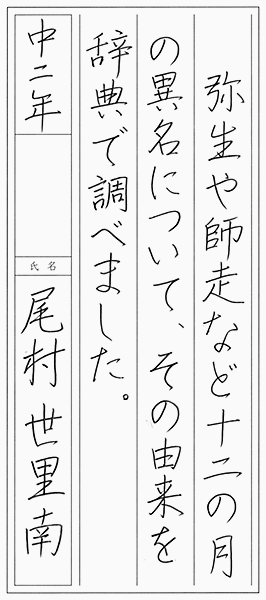 弥生や師走など十二の月
の異名について、その由来を
辞典で調べました。
中二年
氏名
尾村世里南